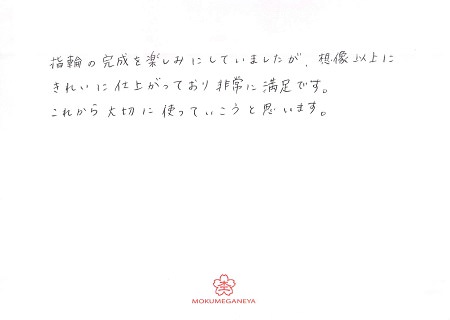 指輪の完成を楽しみにしていましたが、想像以上に
きれいに仕上がっており非常に満足です。
これから大切に使っていこうと思います。
MOKUMEGANEYA